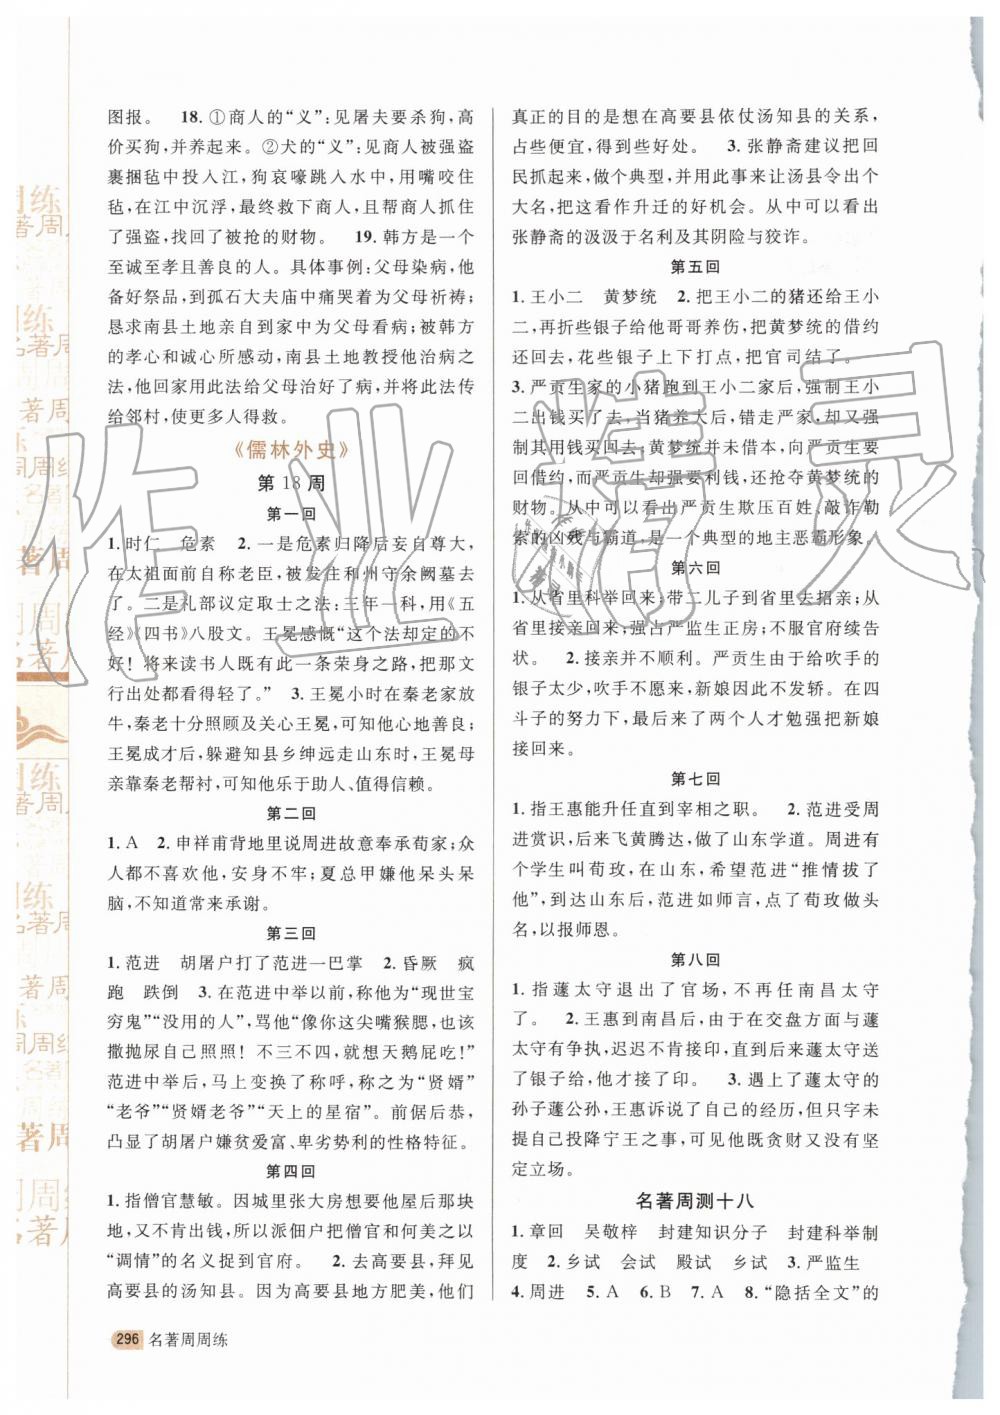 图报。 18. ①商人的“义”:见屠夫要杀狗,高
价买狗,并养起来。②犬的“义”:见商人被强盗
裹捆毡中投入江,狗哀嚎跳入水中,用嘴咬住
毡,在江中沉浮,最终救下商人,且帮商人抓住
了强盗,找回了被抢的财物。 19. 韩方是一个
至诚至孝且善良的人。具体事例:父母染病,他
备好祭品,到孤石大夫庙中痛哭着为父母祈祷;
恳求南县土地亲自到家中为父母看病;被韩方
的孝心和诚心所感动,南县土地教授他治病之
法,他回家用此法给父母治好了病;并把此法传
给邻村,使更多人得救。
《儒林外史》
第 18 周
第一回
1. 时仁 危素 2. 一是危素归降后妄自尊大,
在太祖面前自称老臣,被发往和州守余阙墓去
了。二是礼部议定取士之法:三年一科,用《五
经》《四书》八股文。王冕感慨“这个法却定的不
好!将来读书人既有此一条荣身之路,把那文
行出处都看得轻了。” 3. 王冕小时在秦老家放
牛,秦老十分照顾及关心王冕,可知他心地善良;
王冕成才后,躲避知县乡绅远走山东时,王冕母
亲靠秦老帮衬,可知他乐于助人、值得信赖。
第二回
1. A 2. 申祥甫背地里说周进故意奉承荀家;众
人都不喜欢他,辞了他;夏总甲嫌他呆头呆
脑,不知道常来承谢。
第三回
1. 范进 胡屠户打了范进一巴掌 2. 昏厥 疯
跑 跌倒 3. 在范进中举以前,称他为“现世宝
穷鬼”“没用的人”,骂他“像你这尖嘴猴腮,也该
撒抛尿自己照照! 不三不四,就想天鹅屁吃!”
范进中举后,马上变换了称呼,称他为“贤婿”
“老爷”“贤婿老爷”“天上的星宿”。前倨后恭,
凸显了胡屠户嫌贫爱富、卑劣势利的性格特征。
第四回
1. 指僧官慧敏。因城里张大房想要他屋后那块
地,又不肯出钱,所以派佃户把僧官和何美之以
“调情”的名义捉住送官府。 2. 去高要县,拜见
高要县的汤知县。因为高要县地方肥美,他们
真正的目的是想在高要县依仗汤知县的关系,
占些便宜,得到些好处。 3. 张静斋建议把回
民抓起来,做个典型,并以此事来让汤县令出个
大名,把这看作升迁的好机会。从中可以看出
张静斋的汲汲于名利及其阴险与狡诈。
第五回
1. 王小二 黄梦统 2. 把王小二的猪还给王小
二,再折些银子给他哥哥养伤,把黄梦统的借约
还回去,花些银子上下打点,把官司结了。
3. 严贡生家的小猪跑到王小二家后,强制王小
二出钱买了去,当猪养大后,错走严家,却又强
制其用钱买回去;黄梦统并未借本,向严贡生要
回借约,而严贡生却要利钱,还抢夺黄梦统的
财物。从中可以看出严贡生欺压百姓、敲诈勒
索的凶残与霸道,是一个典型的地主恶霸形象。
第六回
1. 从省里科举回来;带二儿子到省里去招亲;从
省里招亲回来;强占严监生正房;不服官府续告
状。 2. 接亲并不顺利。严贡生由于给吹手的
银子太少,吹手不愿来,新娘因此不发轿。在四
斗子的努力下,最后来了两个人才勉强把新娘
接回来。
第七回
1. 指王惠能升任直到宰相之职。 2. 范进受周
进赏识,后来飞黄腾达,做了山东学道。周进有
个学生叫荀玫,在山东,希望范进“推情拔了
他”。到山东后,范进如师言,点了荀玫做头
名,以报师恩。
第八回
1. 指蘧太守退出了官场,不再任南昌太守
了。 2. 王惠到南昌后,由于在交盘方面与蘧
太守有争执,迟迟不肯接印,直到后来蘧太守送
了银子给他,他才接了印。 3. 遇上了蘧太守的
孙子蘧公孙,王惠诉说了自己的经历,但只字未
提自己投降宁王之事,可以看出他既贪财又没有坚
定立场。
名著周测十八
1. 章回 吴敬梓 封建知识分子 封建科举制
度 2. 乡试 会试 殿试 乡试 3. 严监生
4. 周进 5. A 6. B 7. A 8. “隐括全文”的
296 名著周周练
作业精灵